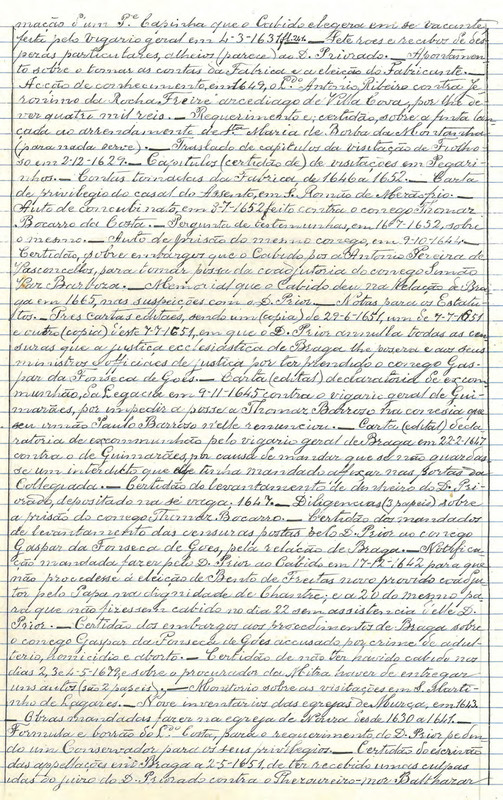 mação d'um Pe. Capinha que o Cabido elegera em se vacante
feita pelo vigario geral em 4-3-1631. — Sete roes e recibos de des-
pezas particulares, alheios (parece) ao D. Priorado. — Apontamen-
to sobre o tomar as contas da Fabrica e a eleição do Fabricante. —
Acção de conhecimento, em 1649, o Ldo. Antonio Ribeiro contra Je-
ronimo da Rocha Freire arcediago de Villa Cova, por lhe de-
ver quatro mil reis. — Requerimento e certidão, sobre a junta lan-
çada ao arrendamento de Sta. Maria de Borba da Montanha
(para nada serve). — Traslado de capitulos da visitação de
so em 2-12-1629. — Capitulos (certidão de) de visitações em Pegari-
nhos. — Contas tomadas da Fabrica, de 1646 a 1652. — Carta
de privilegio do casal do Assento, em S. Romão de Mesãofrio. —
Auto de concubinato, em 3-7-1652 feito contra o conego Thomaz
Bocarro da Costa. — Pergunta de testemunhas, em 16-7-1652, sobre
o mesmo. — Auto de prisão do mesmo conego, em 9-10-1644. —
Certidão, sobre embargos que o Cabido pos a Antonio Pereira de
Vasconcellos, para tomar posse da coadjutoria do conego Simão
Vaz Barboza. — Memorial que o Cabido deu na Relação de Bra-
ga em 1665, nas suspeições com o D. Prior. — Notas para os Estatu-
tos. — Tres cartas citatorias, sendo um (copia) de 29-6-1651, um de 7-7-1651
e outro (copia) d'este 7-7-1651, em que o D. Prior annulla todas as cen-
suras que a justiça ecclesiastica de Braga lhe pozera e aos seus
ministros e officiaes de justiça por ter prendido o conego Gas-
par da Fonseca de Goes. — Carta (edital) declaratoria de excom-
munhão, da Legacia em 9-11-1645 contra o vigario geral de Gui-
marães, por impedir a posse a Thomaz Barrozo na conesia que
seu irmão Paulo Barrozo n'elle renunciou. — Carta (edital) decla-
ratoria de excommunhão pelo vigario geral de Braga em 22-2-1647
contra o de Guimarães por causa de mandar que se não guardas-
se um interdicto que elle tinha mandado afixar nas portas da
Collegiada. — Certidão do levantamento de dinheiro do D. Pri-
orado, depositado na sé vaga. 1647. — Diligencias (3 papeis) sobre
a prisão do conego Thomaz Bocarro. — Certidão dos mandados
de levantamento das censuras postas pelo D. Prior ao conego
Gaspar da Fonseca de Goes, pela relação de Braga. — Notifica-
ção mandada fazer pelo D. Prior ao Cabido em 17-12-1642 para que
não procedesse á eleição de Bento de Freitas novo provido coadju-
tor pelo Papa na dignidade de Chantre; e a 20 do mesmo pa-
ra que não fizessem cabido no dia 22 sem assistencia d'elle D.
Prior. — Certidão dos embargos aos procedimentos de Braga sobre
o conego Gaspar da Fonseca de Goes accusado por crime de adul-
terio, homicidio e aborto. — Certidão de não ter havido cabido nos
dias 2, 3 e 4-5-1679, e sobre o procurador da Mitra haver de entregar
uns autos (são 2 papeis). — Monitorio sobre as visitações em S. Marti-
nho de Lagares. — Nove inventarios das egrejas de Murça, em 1643.
— Obras mandadas fazer na egreja de Noura desde 1630 a 1641. —
Formula e borrão do Ldo. Costa, para o requerimento do D. Prior pedin-
do um Conservador para os seus privilegios. — Certidão do escrivão
das appellações em Braga a 2-5-1651, de ter recebido umas culpas
idas do juizo do D. Priorado contra o Thezoureiro-mor Balthazar